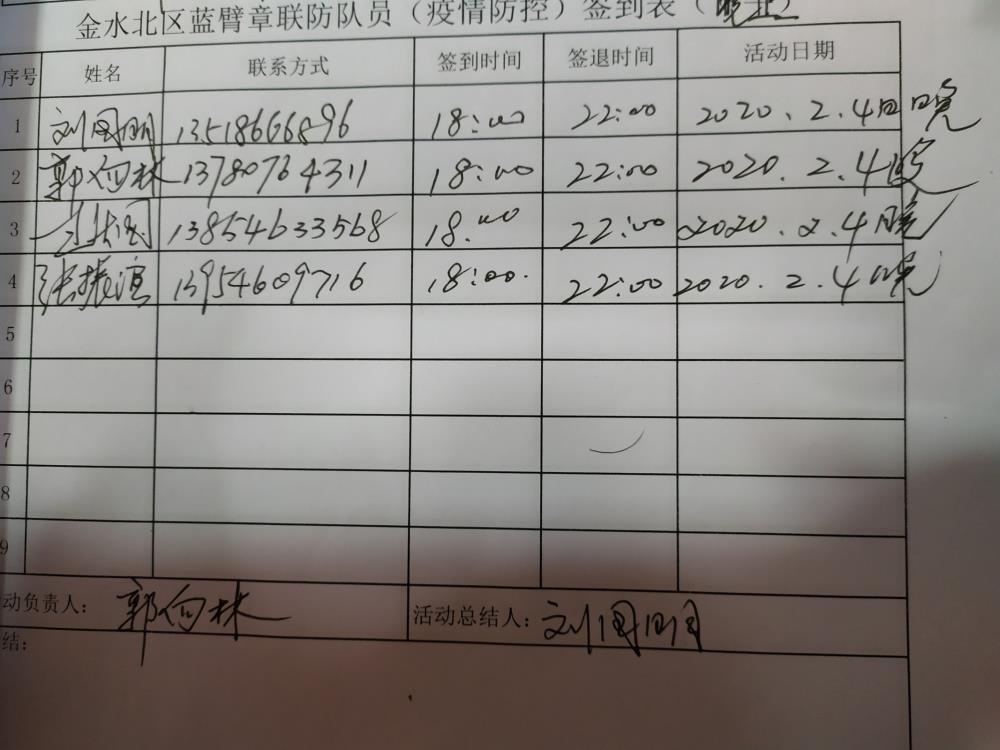 金水北区蓝臂章联防队员（疫情防控）签到表（晚班）
序号 姓名 联系方式 签到时间 签退时间 活动日期
1 刘国明 13518666896 18:00 22:00 2020.2.4日晚
2 郭向林 13780764311 18:00 22:00 2020.2.4晚
3 13854633568 18:00 22:00 2020.2.4晚
4 张振滨 13954609716 18:00. 22:00 2020.2.4晚
5
6
7
8
9
动负责人： 郭向林 活动总结人： 刘国明
结：